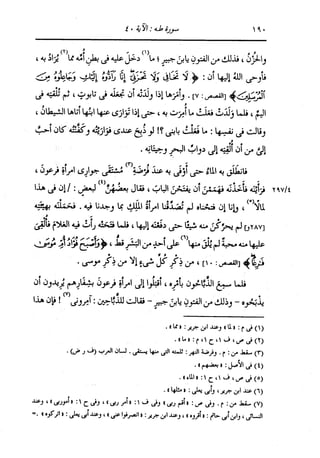 ١٩٠
سورة طه : الآية ٤٠
والحُزْنُ، فذلك من الفُتُونِ يابنَ جبيرٍ؛ ما(١) دخَل عليه في بطنِ أُمِّه مما(٢) يُرَادُ به،
فأوحى اللهُ إليها أن: ﴿وَلَا تَخَافِي وَلَا تَحْزَنِيٓ إِنَّا رَآدُّوهُ إِلَيْكِ وَجَاعِلُوهُ مِنَ
ٱلْمُرْسَلِينَ﴾ [القصص: ٧]. وأمَرها إذا ولَدَتْه أن تجعَلَه في تابوتٍ، ثم تُلْقِيَه في
اليمِّ، فلما ولَدَت فعَلَت ما أُمِرَت به، حتى إذا تَوَارَى عنها ابنُها أتاها الشيطانُ،
وقالت في نفسِها: ما فعَلتُ بابني؟! لو ذُبِحَ عندي فوَارَيتُه وكَفَّنتُه كان أحبَّ
إليَّ من أن أُلْقِيَه إلى دوابِّ البحرِ وحِيتانِه.
فانطلَق به الماءُ حتى أوْفَى به عندَ فُرْضَةِ(٣) مُسْتَقَى جوارِي امرأةِ فرعونَ،
فرَأَيْنَه فأخَذْنَه فهَمَمْنَ أن يفتَحْنَ البابَ، فقال بعضُهُنَّ(٤) لبعضٍ: /إن في هذا
٢٩٧/٤
لمالًا(٥)، وإنا إن فتَحناه لم تُصَدِّقْنا امرأةُ الملكِ بما وجَدنا فيه. فحَمَلْنَه بهيئتِه
[٢٨٧و] لم يُحَرِّكْن منه شيئًا حتى دفَعْنَه إليها، فلما فتَحَتْه رأَت فيه الغلامَ فأُلْقِيَ
عليها منه محبةٌ لم يُلْقَ مِنها(٦) على أحدٍ من البشرِ قطُّ، ﴿وَأَصْبَحَ فُؤَادُ أُمِّ مُوسَىٰ
فَٰرِغًا﴾ [القصص: ١٠]، من ذِكْرِ كلِّ شيءٍ إلا من ذِكْرِ موسى.
فلما سمِع الذَّبَّاحون بأمرِه، أقبَلوا إلى امرأةِ فرعونَ بشِفارِهم يُريدون أن
يذبَحوه - وذلك من الفتونِ يابنَ جبيرٍ - فقالت للذبَّاحين: أمروني(٧)! فإن هذا
(١) في م: «لما» وعند ابن جرير: «مما».
(٢) في ص، ف ١، ح ١، م: «ما».
(٣) سقط من: م. وفرضة النهر: ثلمته التي منها يستقى. لسان العرب (ف ر ض).
(٤) في الأصل: «بعضهم».
(٥) في ص، ف ١، ح ١: «الماء».
(٦) عند ابن جرير، وأبي يعلى: «مثلها».
(٧) سقط من: م. وفي ص: «أقم ربي» وفي ف ١: «أمر ربي»، وفي ح ١: «أموربي»، وعند
النسائي، وابن أبي حاتم: «أقروه»، وعند ابن جرير: «انصرفوا عنى»، وعند أبي يعلى: «اتركوه». =